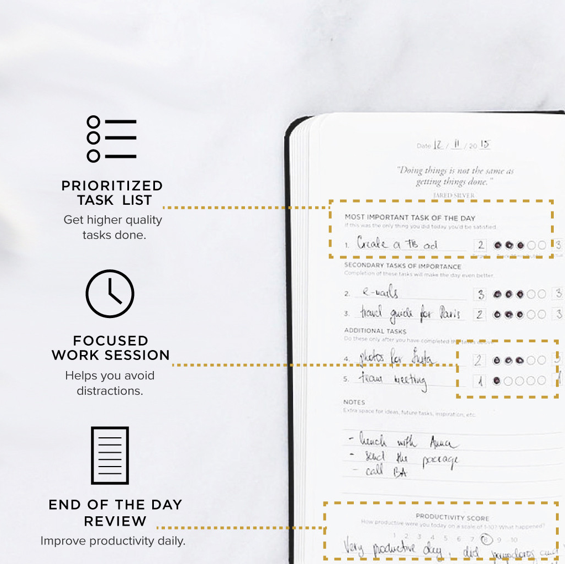 PRIORITIZED
TASK LIST
Get higher quality
tasks done.
FOCUSED
WORK SESSION
Helps you avoid
distractions.
END OF THE DAY
REVIEW
Improve productivity daily.
Date 12 / 11 / 20 15
"Doing things is not the same as
getting things done."
JARED SILVER
MOST IMPORTANT TASK OF THE DAY
If this was the only thing you did today, you'd be satisfied.
1. Create a FB ad 2
SECONDARY TASKS OF IMPORTANCE
Completion of these tasks will make the day even better.
2. e-mails 3
3. travel guide for Paris 2
ADDITIONAL TASKS
Do these only after you have completed
4. photos for Insta 2
5. team meeting 1
NOTES
Extra space for ideas, future tasks, inspiration, etc.
- lunch with Anna
- send the package
- call BA
PRODUCTIVITY SCORE
How productive were you today on a scale of 1-10? What happened?
1 2 3 4 5 6 7 8 9 10
Very productive day, did